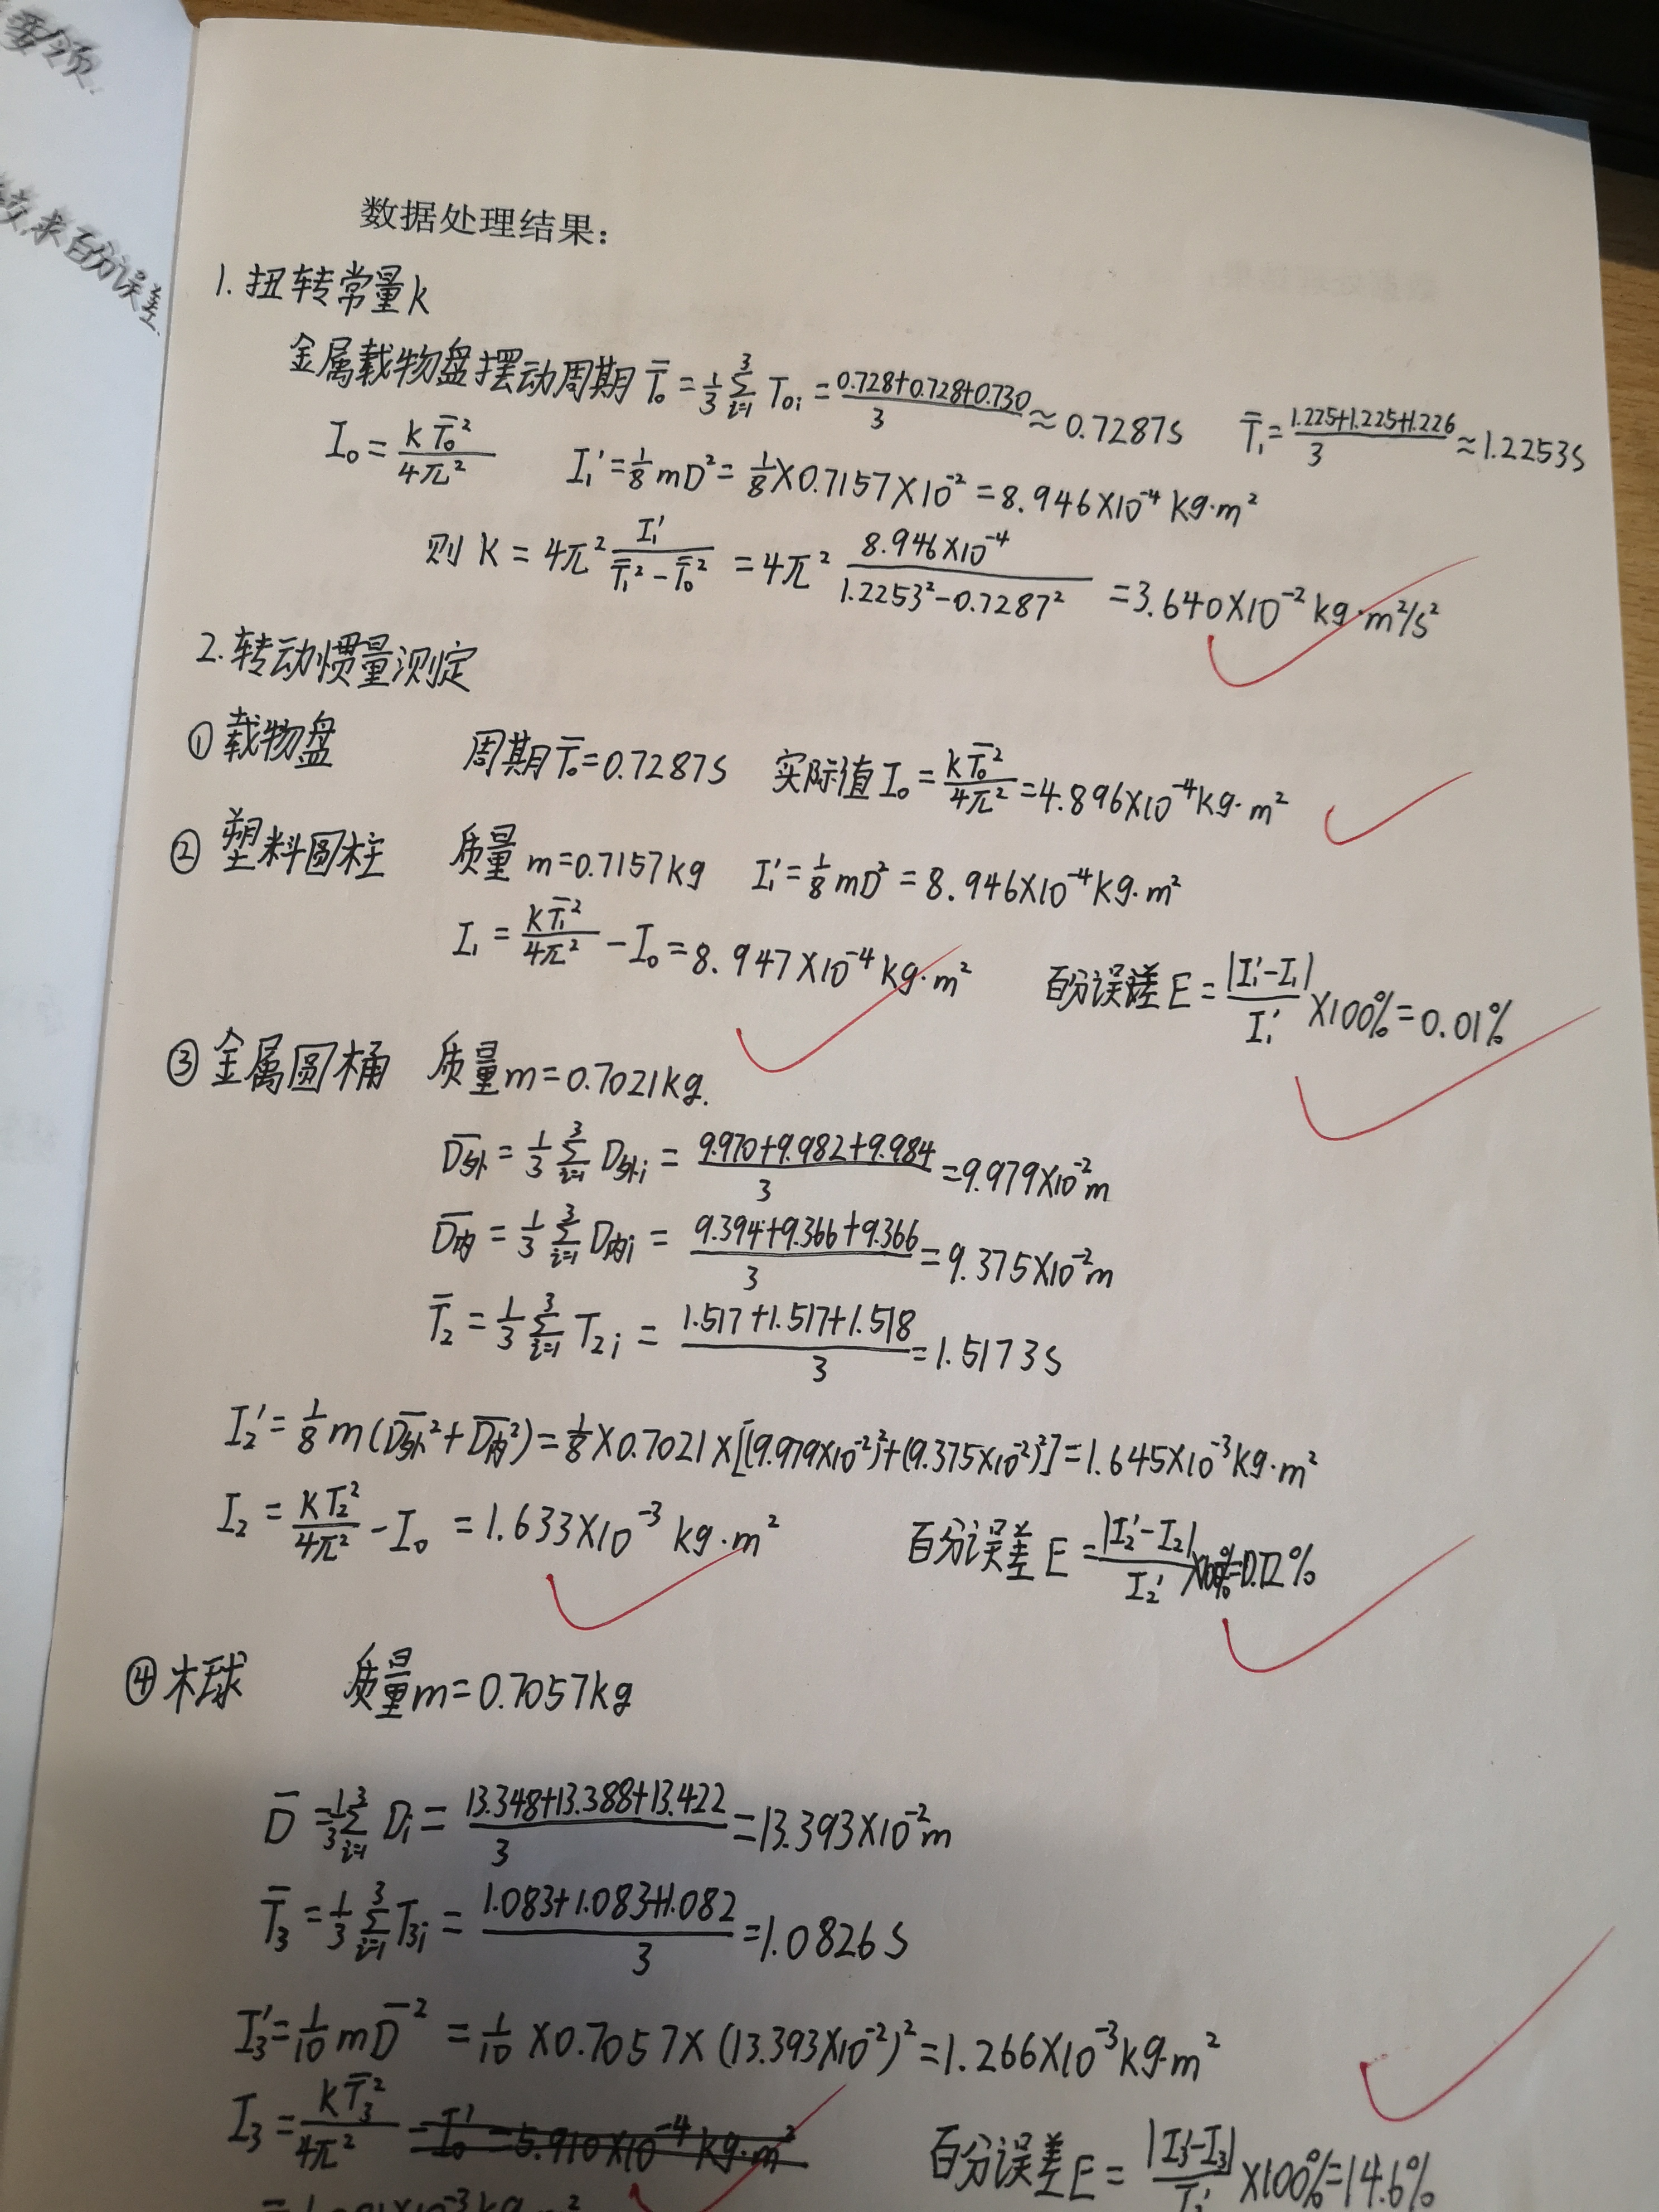 委领.
数,求百分误差.
数据处理结果:
1. 扭转常量k
金属载物盘摆动周期 T̄₀ = 1/3 Σ(i=1→3) T₀ᵢ = (0.728+0.728+0.730)/3 ≈ 0.7287s T̄₁ = (1.225+1.225+1.226)/3 ≈ 1.2253s
I₀ = kT̄₀²/4π² I₁' = 1/8 mD² = 1/8 × 0.7157×10⁻² = 8.946×10⁻⁴ kg·m²
则 K = 4π² I₁'/(T̄₁²-T̄₀²) = 4π² 8.946×10⁻⁴/(1.2253²-0.7287²) = 3.640×10⁻² kg·m²/s²
2. 转动惯量测定
① 载物盘 周期T̄₀=0.7287s 实际值 I₀ = kT̄₀²/4π² = 4.896×10⁻⁴ kg·m²
② 塑料圆柱 质量 m=0.7157kg I₁' = 1/8 mD² = 8.946×10⁻⁴ kg·m²
I₁ = kT̄₁²/4π² - I₀ = 8.947×10⁻⁴ kg·m² 百分误差 E = |I₁'-I₁|/I₁' ×100% = 0.01%
③ 金属圆桶 质量m=0.7021kg.
D̄外 = 1/3 Σ(i=1→3) D外ᵢ = (9.970+9.982+9.984)/3 = 9.979×10⁻²m
D̄内 = 1/3 Σ(i=1→3) D内ᵢ = (9.394+9.366+9.366)/3 = 9.375×10⁻²m
T̄₂ = 1/3 Σ(i=1→3) T₂ᵢ = (1.517+1.517+1.518)/3 = 1.5173s
I₂' = 1/8 m(D̄外²+D̄内²) = 1/8×0.7021×[(9.979×10⁻²)²+(9.375×10⁻²)²] = 1.645×10⁻³ kg·m²
I₂ = KT₂²/4π² - I₀ = 1.633×10⁻³ kg·m² 百分误差 E = |I₂'-I₂|/I₂' ×100%=0.72%
④ 木球 质量m=0.7057kg
D̄ = 1/3 Σ(i=1→3) Dᵢ = (13.348+13.388+13.422)/3 = 13.393×10⁻²m
T̄₃ = 1/3 Σ(i=1→3) T₃ᵢ = (1.083+1.083+1.082)/3 = 1.0826s
I₃' = 1/10 mD̄² = 1/10 × 0.7057 × (13.393×10⁻²)² = 1.266×10⁻³ kg·m²
I₃ = kT̄₃²/4π² - I₀' = 5.910×10⁻⁴ kg·m² 百分误差E = |I₃'-I₃|/I₃' ×100%=14.6%